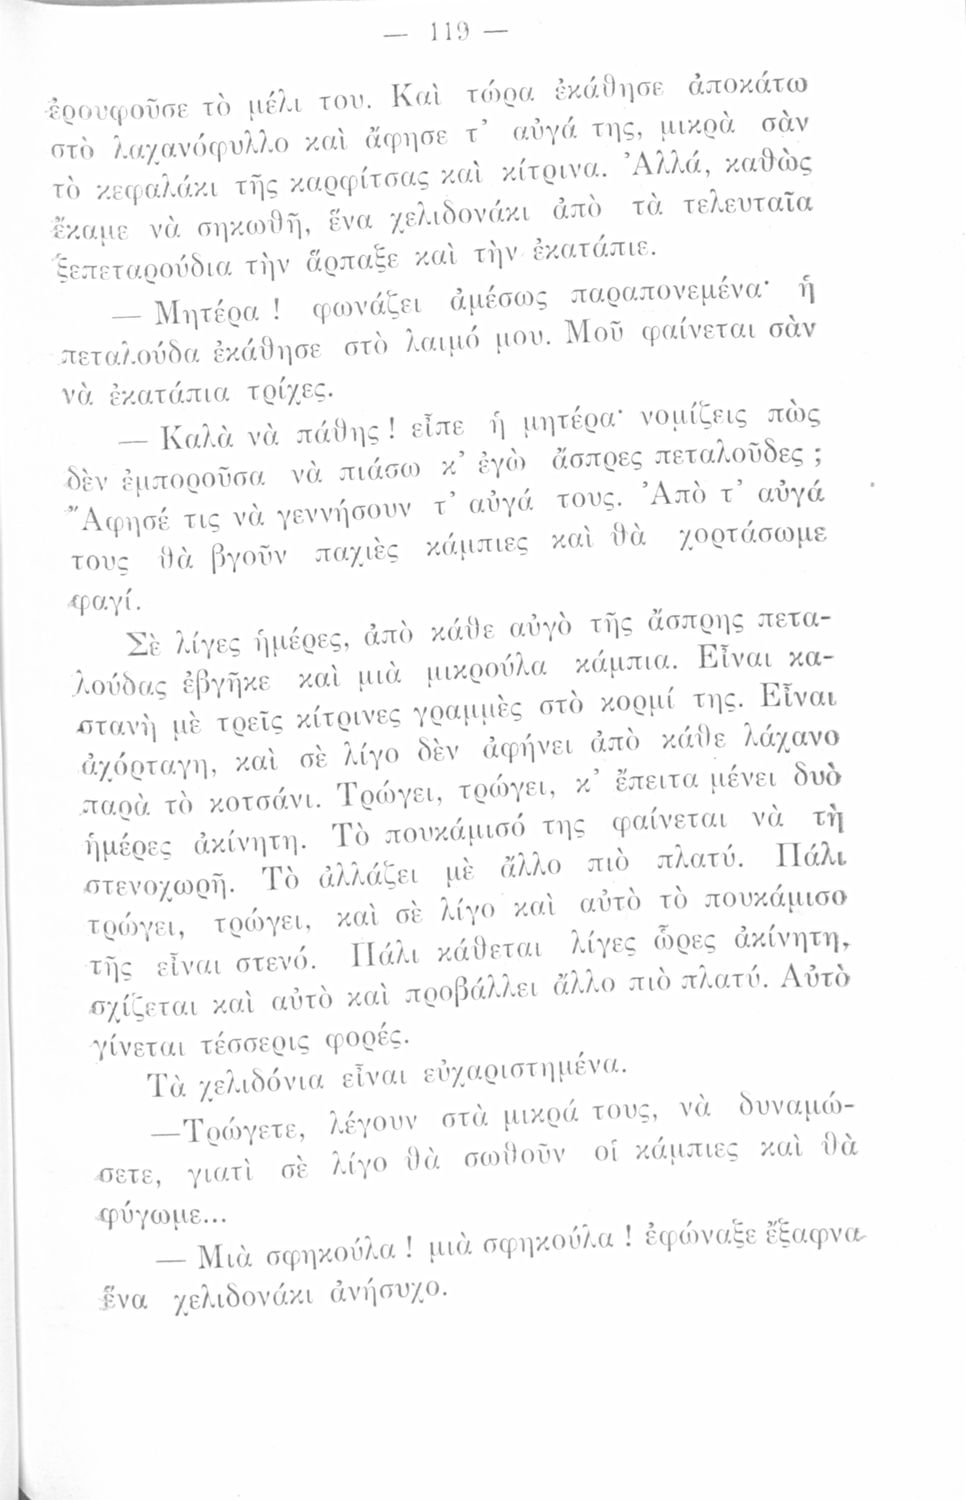 — 119 —
ἐρουφοῦσε τὸ μέλι του. Καὶ τώρα ἐκάθησε ἀποκάτω
στὸ λαχανόφυλλο καὶ ἄφησε τ’ αὐγά της, μικρὰ σὰν
τὸ κεφαλάκι τῆς καρφίτσας καὶ κίτρινα. Ἀλλά, καθὼς
ἔκαμε νὰ σηκωθῇ, ἕνα χελιδονάκι ἀπὸ τὰ τελευταῖα
ξεπεταρούδια τὴν ἅρπαξε καὶ τὴν ἐκατάπιε.
— Μητέρα ! φωνάζει ἀμέσως παραπονεμένα· ἡ
πεταλούδα ἐκάθησε στὸ λαιμό μου. Μοῦ φαίνεται σὰν
νὰ ἐκατάπια τρίχες.
— Καλὰ νὰ πάθης ! εἶπε ἡ μητέρα· νομίζεις πὼς
δὲν ἐμποροῦσα νὰ πιάσω κ’ ἐγὼ ἄσπρες πεταλοῦδες ;
Ἄφησέ τις νὰ γεννήσουν τ’ αὐγά τους. Ἀπὸ τ’ αὐγά
τους θὰ βγοῦν παχιὲς κάμπιες καὶ θὰ χορτάσωμε
φαγί.
Σὲ λίγες ἡμέρες, ἀπὸ κάθε αὐγὸ τῆς ἄσπρης πετα-
λούδας ἐβγῆκε καὶ μιὰ μικρούλα κάμπια. Εἶναι κα-
στανὴ μὲ τρεῖς κίτρινες γραμμὲς στὸ κορμί της. Εἶναι
ἀχόρταγη, καὶ σὲ λίγο δὲν ἀφήνει ἀπὸ κάθε λάχανο
παρὰ τὸ κοτσάνι. Τρώγει, τρώγει, κ’ ἔπειτα μένει δυὸ
ἡμέρες ἀκίνητη. Τὸ πουκάμισό της φαίνεται νὰ τὴ
στενοχωρῇ. Τὸ ἀλλάζει μὲ ἄλλο πιὸ πλατύ. Πάλι
τρώγει, τρώγει, καὶ σὲ λίγο καὶ αὐτὸ τὸ πουκάμισο
τῆς εἶναι στενό. Πάλι κάθεται λίγες ὧρες ἀκίνητη,
σχίζεται καὶ αὐτὸ καὶ προβάλλει ἄλλο πιὸ πλατύ. Αὐτὸ
γίνεται τέσσερις φορές.
Τὰ χελιδόνια εἶναι εὐχαριστημένα.
—Τρώγετε, λέγουν στὰ μικρά τους, νὰ δυναμώ-
σετε, γιατὶ σὲ λίγο θὰ σωθοῦν οἱ κάμπιες καὶ θὰ
φύγωμε...
— Μιὰ σφηκούλα ! μιὰ σφηκούλα ! ἐφώναξε ἔξαφνα
ἕνα χελιδονάκι ἀνήσυχο.